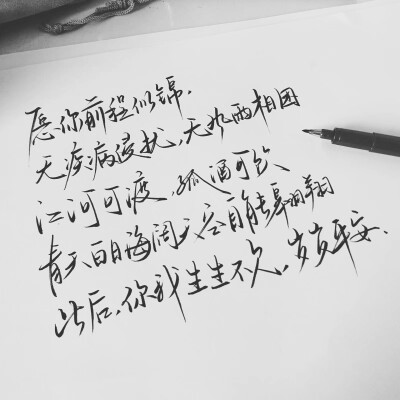 愿你前程似锦.
无疾病侵扰,无风雨相困
江河可渡,孤酒可饮
青天白日海阔天空自能翱翔
此后,你我生生不欠,岁岁平安.